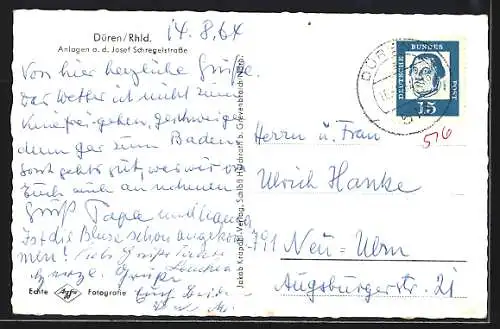 Düren/Rhld.
Anlagen a. d. Josef Schregelstraße
14.8.64
Von hier herzliche Grüße.
Das Wetter ist nicht zum
Kniefrei-gehen, geschweige
denn gar zum Baden
Sonst gehts gut, was wir von
Euch auch annehmen
Gruß Papa und
Ist die Bluse schon angekom-
men! Viele Grüße
herzl. Grüße
Echte Agfa Fotografie
Jakob Krapohl-Verlag, Schloß Hülchrath b. Grevenbroich
DÜR
DEUTSCHE BUNDES POST
15
576
Herrn u. Frau
Ulrich Hanke
791 Neu-Ulm
Augsburgerstr. 21